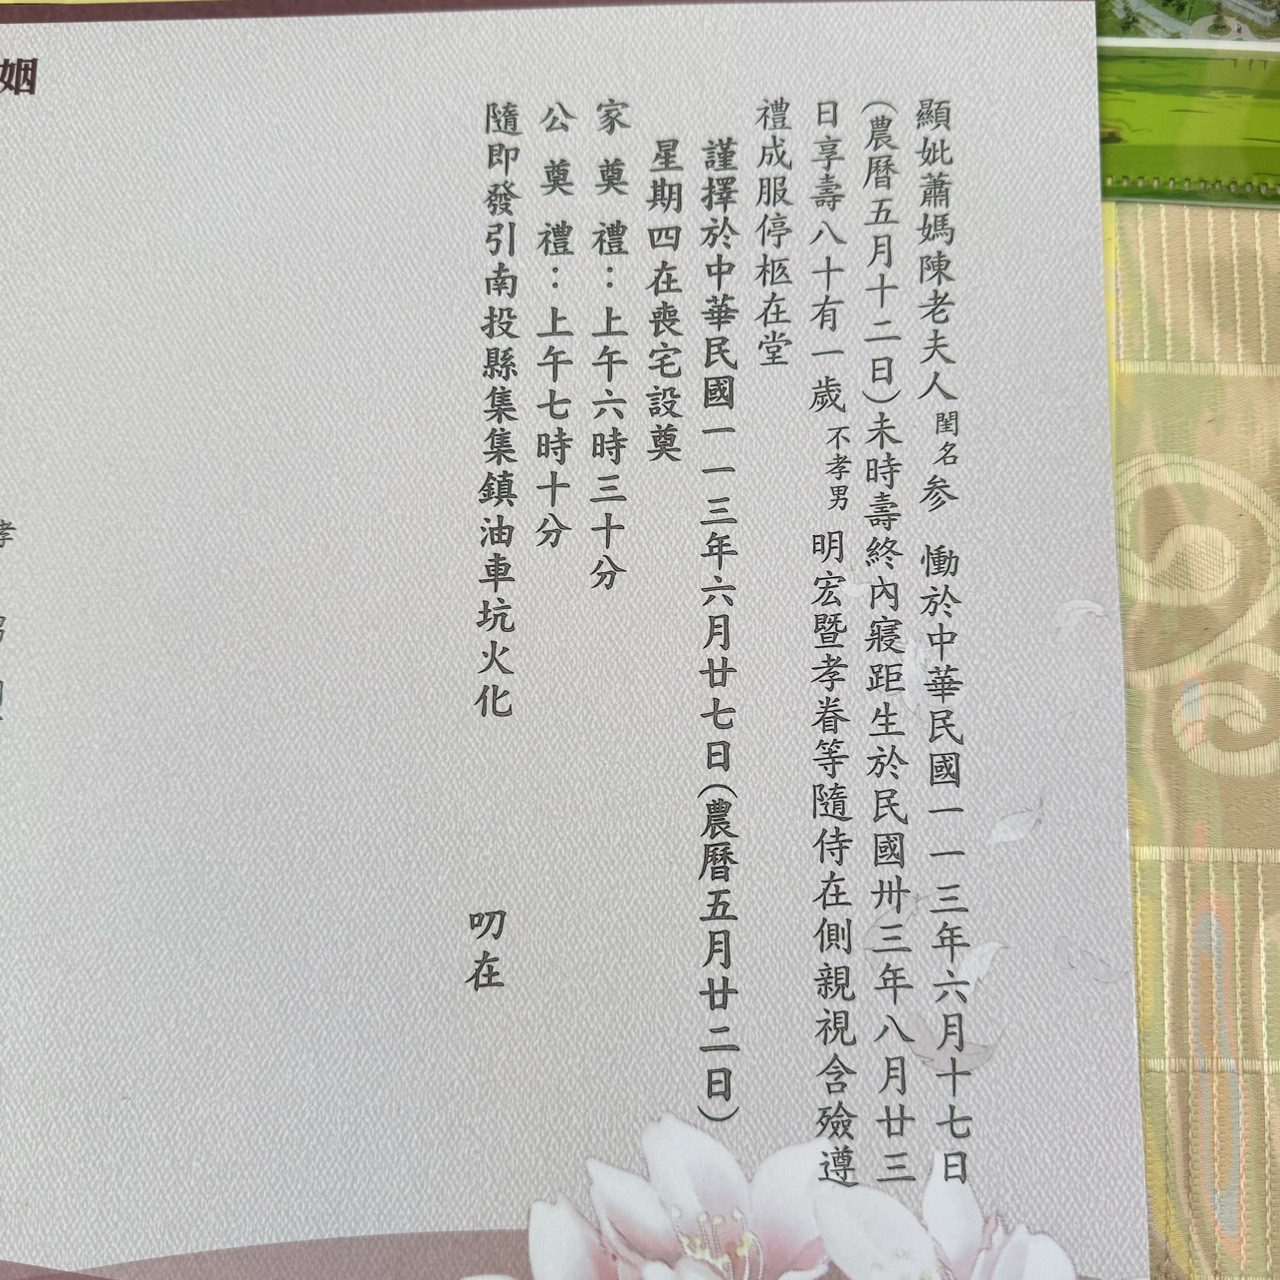 顯妣蕭媽陳老夫人閨名参　慟於中華民國一一三年六月十七日
(農曆五月十二日)未時壽終內寢距生於民國卅三年八月廿三
日享壽八十有一歲不孝男明宏暨孝眷等隨侍在側親視含殮遵
禮成服停柩在堂
謹擇於中華民國一一三年六月廿七日(農曆五月廿二日)
星期四在喪宅設奠
家奠禮：上午六時三十分
公奠禮：上午七時十分
隨即發引南投縣集集鎮油車坑火化
叨在
姻
孝